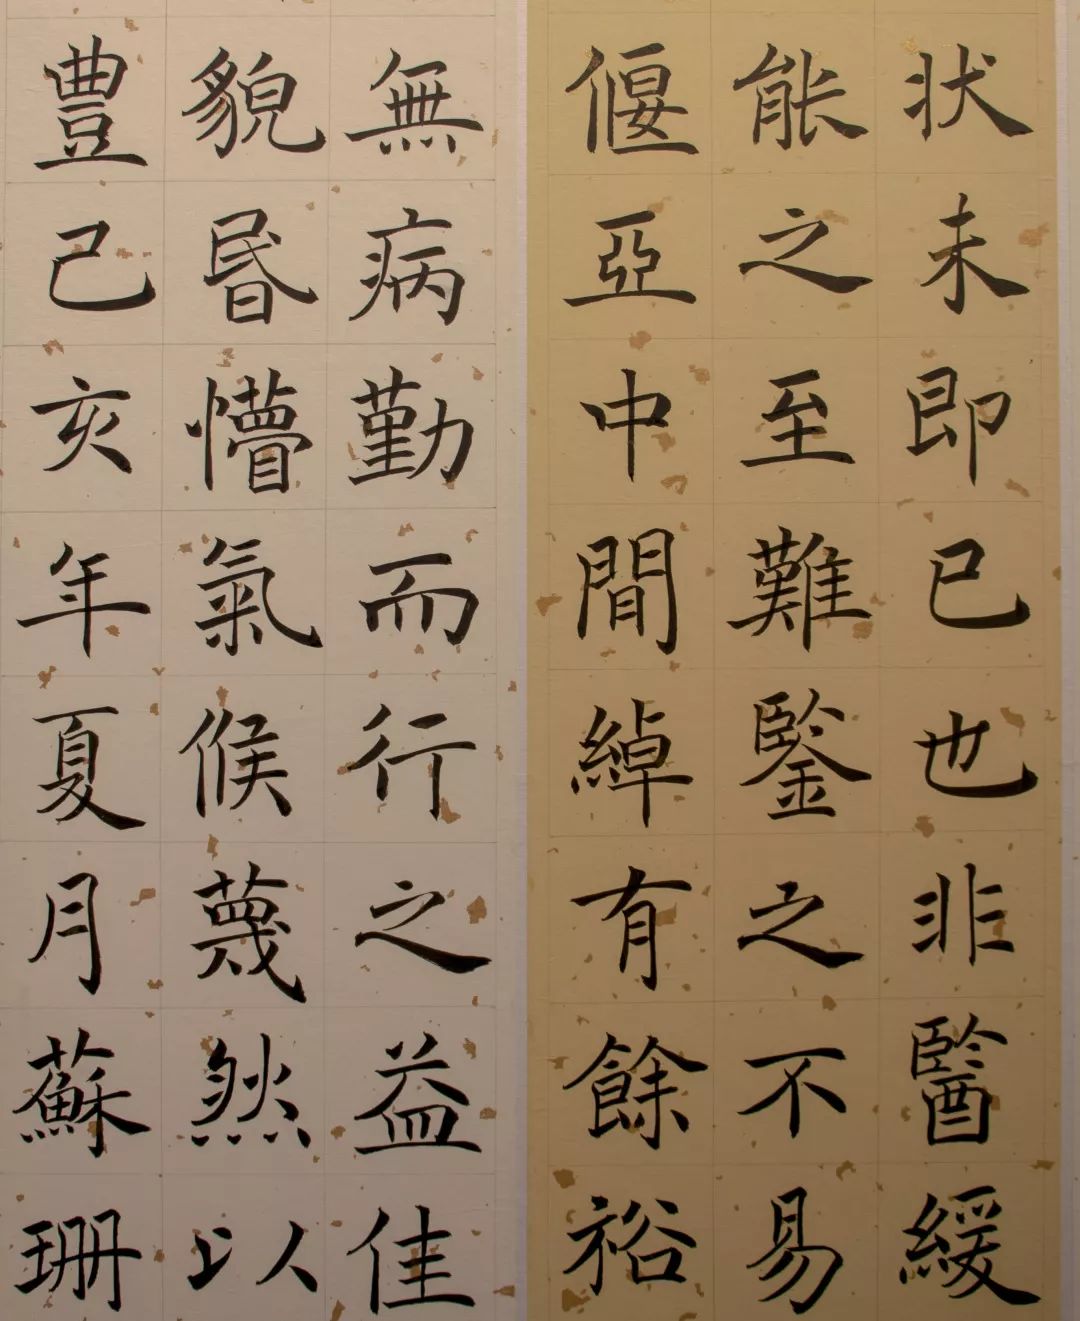 状未即已也非醫緩
能之至難鑒之不易
偃亞中間綽有餘裕
無病勤而行之益佳
貌昏懵氣候蔑然以
豊己亥年夏月蘇珊